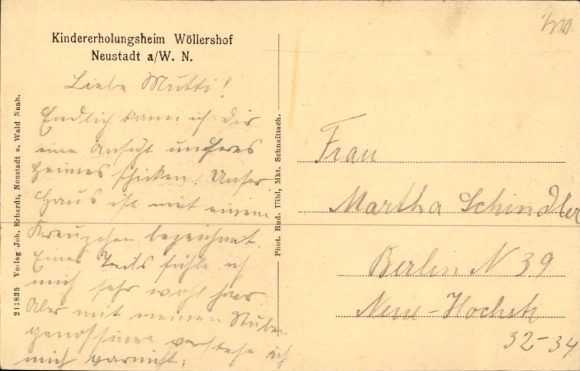 Kindererholungsheim Wöllershof
Neustadt a/W. N.
Liebe Mutti!
Endlich kann ich Dir
eine Ansicht unseres
Heimes schicken. Unser
Haus ist mit einem
Kreuzchen bezeichnet.
Eines Teils fühle ich
mich sehr wohl hier.
Aber mit meinen Stuben-
genossinen verstehe ich
mich garnicht.
211835 Verlag Joh. Erhardt, Neustadt a. Wald Naab.
Phot. Rud. Hibl, Mkt. Schnaittach.
Frau
Martha Schindler
Berlin N 39
Neue-Hochstr
32-34